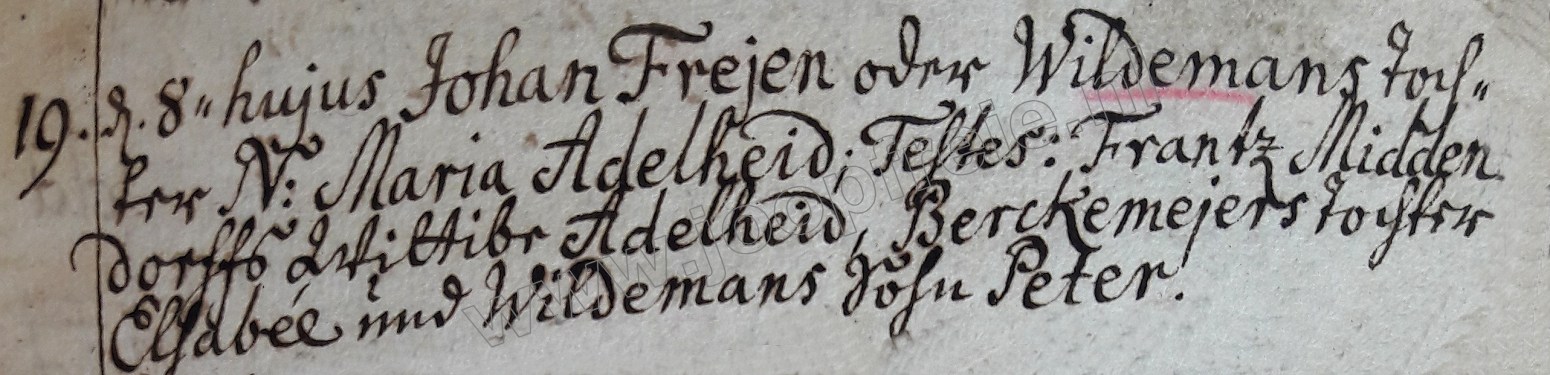 19. d. 8" hujus Johan Frejen oder Wildemans Toch=
ter N: Maria Adelheid; Testes: Frantz Midden
dorffs Wittibe Adelheid, Berckemejers Tochter
Elsabee und Wildemans Sohn Peter.